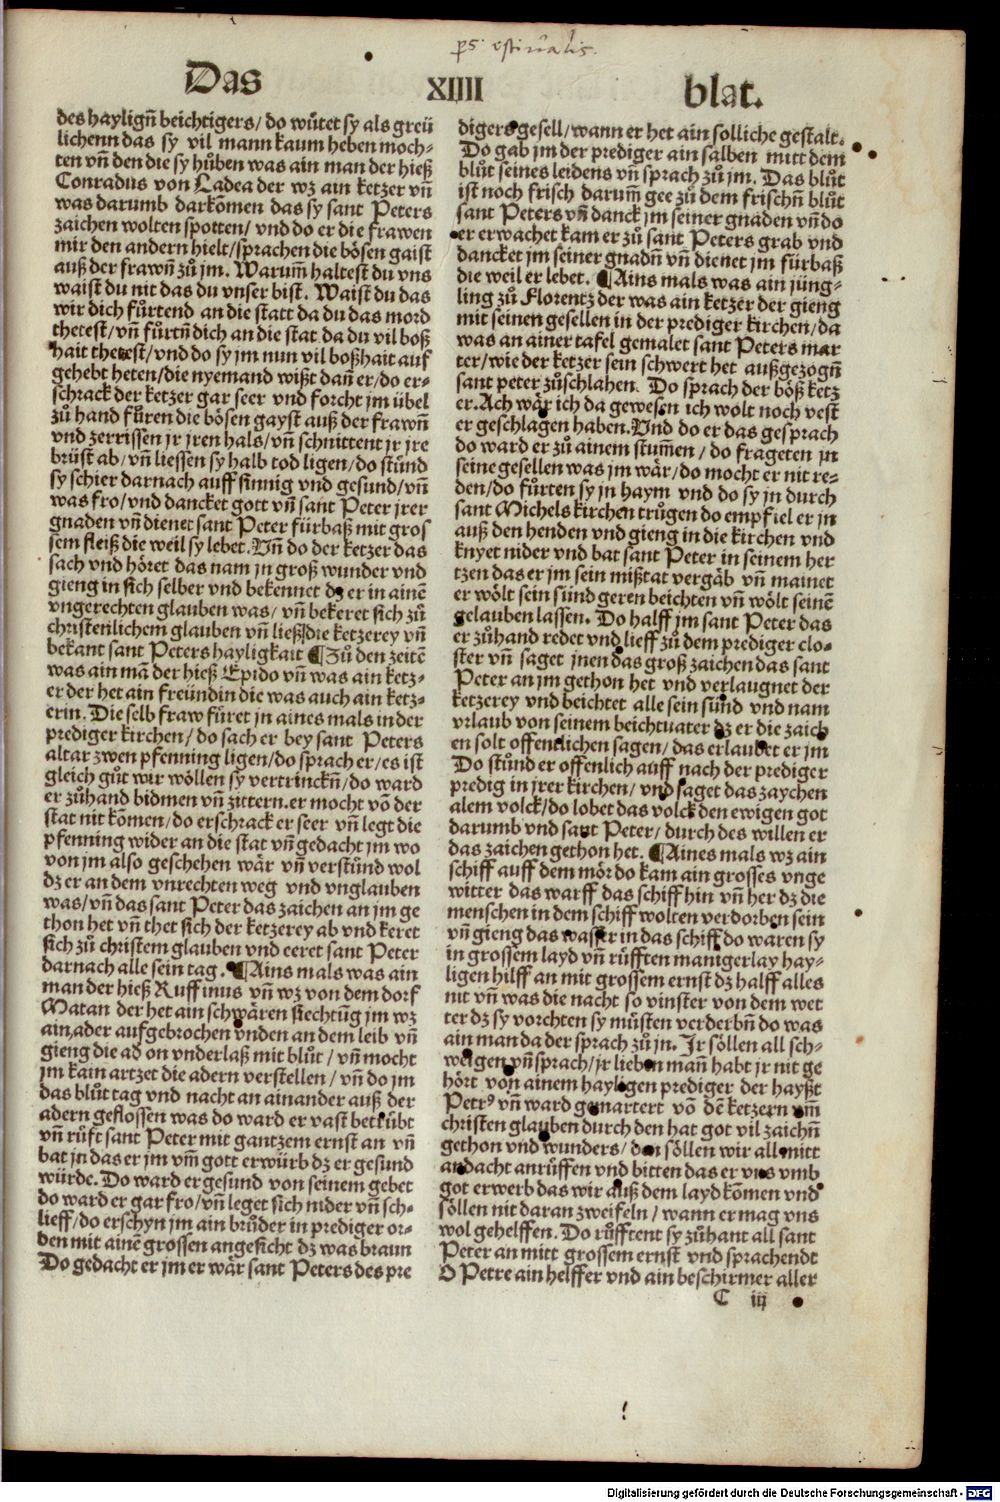 ps. estivalis.
Das XIIII blat.
des hayligñ beichtigers/ do wůtet sy als greü
lichenn das sy vil mann kaum heben moch-
ten vñ den die sy hůben was ain man der hieß
Conradus von Ladea der wz ain ketzer vñ
was darumb darkōmen das sy sant Peters
zaichen wolten spotten/ vnd do er die frawen
mir den andern hielt/sprachen die bösen gaist
auß der frawñ zů jm. Warum̄ haltest du vns
waist du nit das du vnser bist. Waist du das
wir dich fůrtend an die statt da du das mord
thetest/vñ fůrtñ dich an die stat da du vil boß
hait thetest/vnd do sy jm nun vil boßhait auf
gehebt heten/die nyemand wißt dañ er/do er-
schrack der ketzer gar seer vnd forcht jm übel
zů hand fůren die bösen gayst auß der frawñ
vnd zerrissen jr jren hals/vñ schnittent jr jre
brüst ab/vñ liessen sy halb tod ligen/do stůnd
sy schier darnach auff sinnig vnd gesund/vñ
was fro/vnd dancket gott vñ sant Peter jrer
gnaden vñ dienet sant Peter fürbaß mit gros
sem fleiß die weil sy lebet. Vñ do der ketzer das
sach vnd höret das nam jn groß wunder vnd
gieng in sich selber vnd bekennet dz er in ainē
vngerechten glauben was/ vñ bekeret sich zů
christenlichem glauben vñ ließ die ketzerey vñ
bekant sant Peters hayligkait ¶ Zů den zeitē
was ain mā der hieß Epido vñ was ain ketz-
er der het ain freündin die was auch ain ketz-
erin. Die selb fraw fůret jn aines mals in der
prediger kirchen/ do sach er bey sant Peters
altar zwen pfenning ligen/do sprach er/es ist
gleich gůt wir wöllen sy vertrinckñ/do ward
er zůhand bidmen vñ zittern.er mocht vō der
stat nit komen/do erschrack er seer vñ legt die
pfenning wider an die stat vñ gedacht jm wo
von jm also geschehen wär vñ verstůnd wol
dz er an dem vnrechten weg vnd vnglauben
was/vñ das sant Peter das zaichen an jm ge
thon het vñ thet sich der ketzerey ab vnd keret
sich zů christem glauben vnd eeret sant Peter
darnach alle sein tag. ¶ Ains mals was ain
man der hieß Ruffinus vñ wz von dem dorf
Matan der het ain schwären siechtūg jm wz
ain ader aufgebrochen vnden an dem leib vñ
gieng die ad on vnderlaß mit blůt/ vñ mocht
jm kain artzet die adern verstellen/vñ do jm
das blůt tag vnd nacht an ainander auß der
adern geflossen was do ward er vast betrübt
vñ rüft sant Peter mit gantzem ernst an vñ
bat jn das er jm vm̄ gott erwürb dz er gesund
würde. Do ward er gesund von seinem gebet
do ward er gar fro/vñ leget sich nider vñ sch-
lieff/do erschyn jm ain brůder in prediger or-
den mit ainē grossen angesicht dz was braun
Do gedacht er jm er wär sant Peters des pre
digers gesell/wann er het ain solliche gestalt.
Do gab jm der prediger ain salben mitt dem
blůt seines leidens vñ sprach zů jm. Das blůt
ist noch frisch darum̄ gee zů dem frischñ blůt
sant Peters vñ danck jm seiner gnaden vñ do
er erwachet kam er zů sant Peters grab vnd
dancket jm seiner gnadñ vñ dienet jm fürbaß
die weil er lebet. ¶ Ains mals was ain jüng-
ling zů Florentz der was ain ketzer der gieng
mit seinen gesellen in der prediger kirchen/da
was an ainer tafel gemalet sant Peters mar
ter/wie der ketzer sein schwert het außgezogñ
sant peter zůschlahen. Do sprach der böß ketz
er.Ach wär ich da gewesen ich wolt noch vest
er geschlagen haben.Vnd do er das gesprach
do ward er zů ainem stum̄en/ do frageten jn
seine gesellen was jm wär/do mocht er nit re-
den/do fůrten sy jn haym vnd do sy jn durch
sant Michels kirchen trůgen do empfiel er jn
auß den henden vnd gieng in die kirchen vnd
knyet nider vnd bat sant Peter in seinem her
tzen das er jm sein mißtat vergäb vñ mainet
er wölt sein sünd geren beichten vñ wölt seinē
gelauben lassen. Do halff jm sant Peter das
er zůhand redet vnd lieff zů dem prediger clo-
ster vñ saget jnen das groß zaichen das sant
Peter an jm gethon het vnd verlaugnet der
ketzerey vnd beichtet alle sein sünd vnd nam
vrlaub von seinem beichtuater dz er die zaich
en solt offenlichen sagen/das erlaubet er jm
Do stůnd er offenlich auff nach der prediger
predig in jrer kirchen/ vnd saget das zaychen
alem volck/do lobet das volck den ewigen got
darumb vnd sant Peter/ durch des willen er
das zaichen gethon het. ¶ Aines mals wz ain
schiff auff dem mör do kam ain grosses vnge
witter das warff das schiff hin vñ her dz die
menschen in dem schiff wolten verdorben sein
vñ gieng das wasser in das schiff do waren sy
in grossem layd vñ rüfften manigerlay hay-
ligen hilff an mit grossem ernst dz halff alles
nit vñ was die nacht so vinster von dem wet
ter dz sy vorchten sy müsten verderbñ do was
ain man da der sprach zů jn. Jr söllen all sch-
weigen vñ sprach/jr lieben mañ habt jr nit ge
hört von ainem hayligen prediger der hayßt
Petrꝰ vñ ward gemartert vō dē ketzern vm̄
christen glauben durch den hat got vil zaichñ
gethon vnd wunders/ den söllen wir all mitt
andacht anrüffen vnd bitten das er vns vmb
got erwerb das wir auß dem layd kōmen vnd
söllen nit daran zweifeln/ wann er mag vns
wol gehelffen. Do růfftent sy zůhant all sant
Peter an mitt grossem ernst vnd sprachendt
O Petre ain helffer vnd ain beschirmer aller
C iij
Digitalisierung gefördert durch die Deutsche Forschungsgemeinschaft - DFG